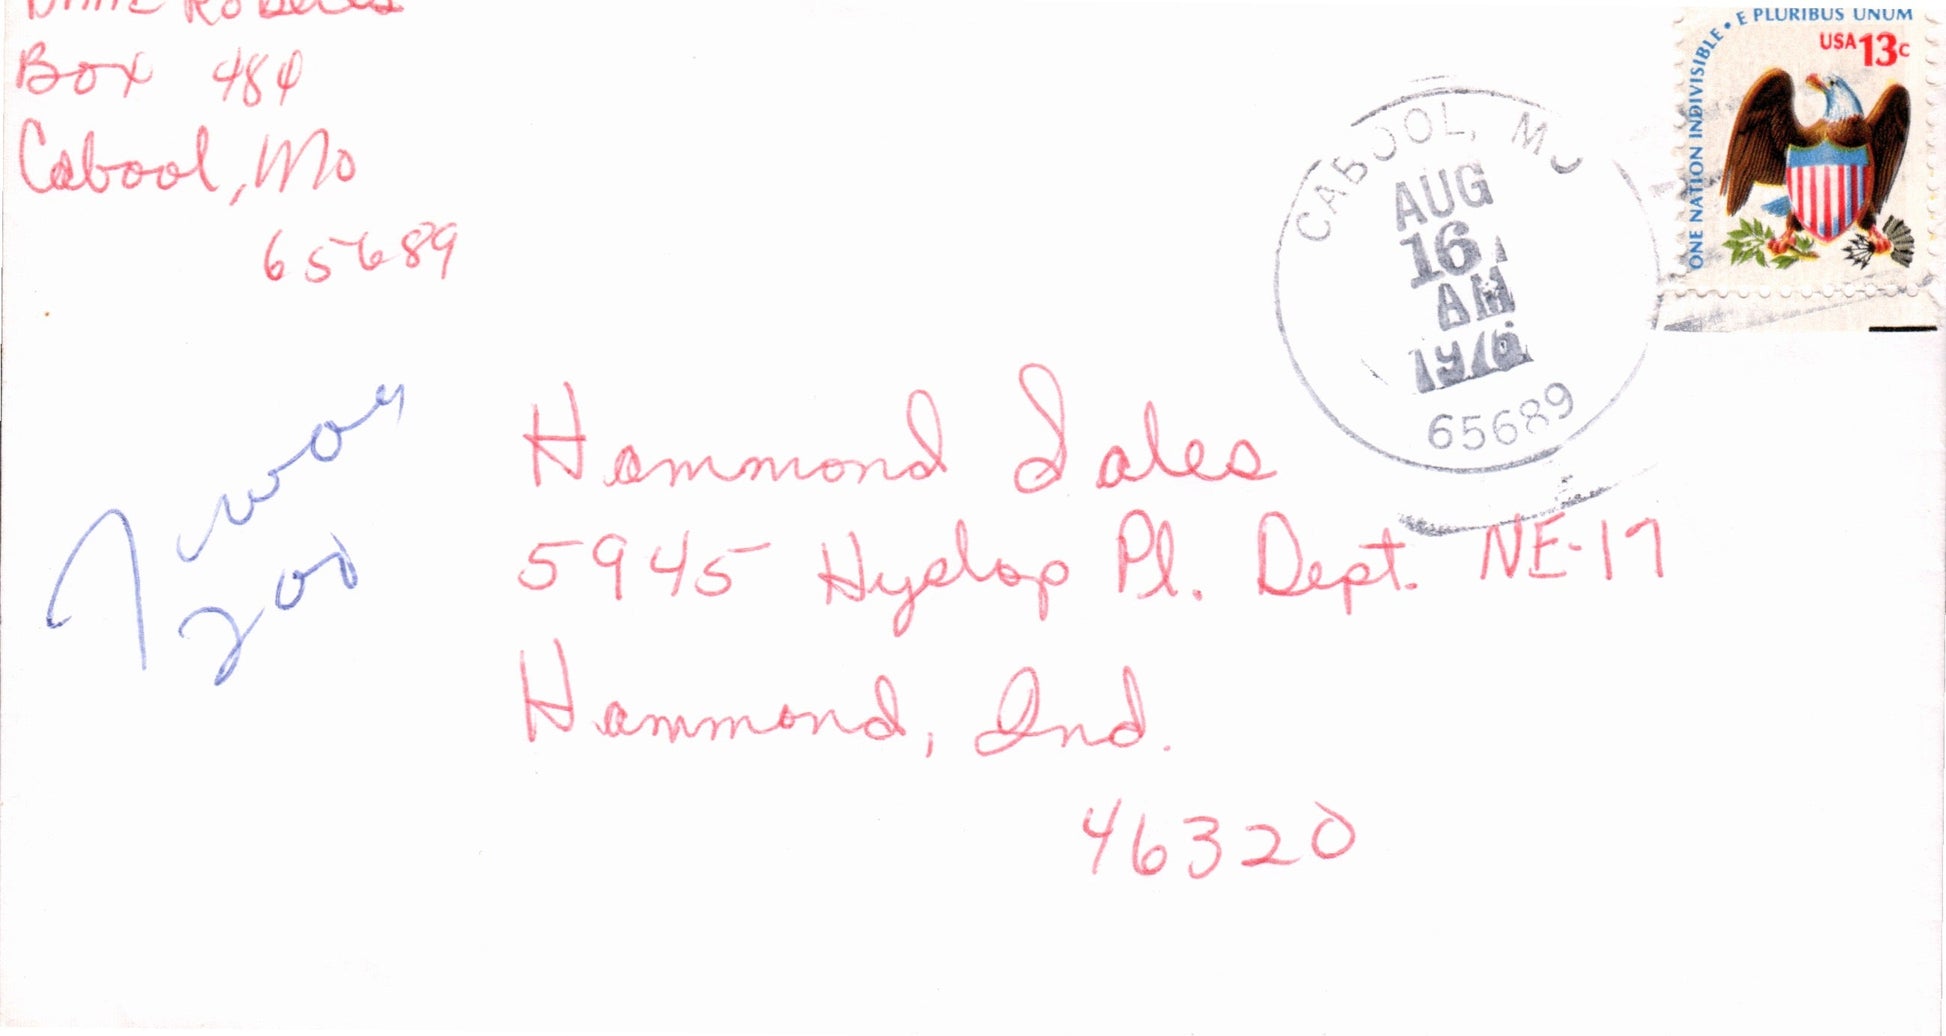 Roberts
Box 484
Cabool, Mo
65689
E PLURIBUS UNUM
ONE NATION INDIVISIBLE •
USA 13c
CABOOL, MO
AUG
16
AM
1976
65689
Hammond Sales
5945 Hyslop Pl. Dept. NE-17
Hammond, Ind.
46320